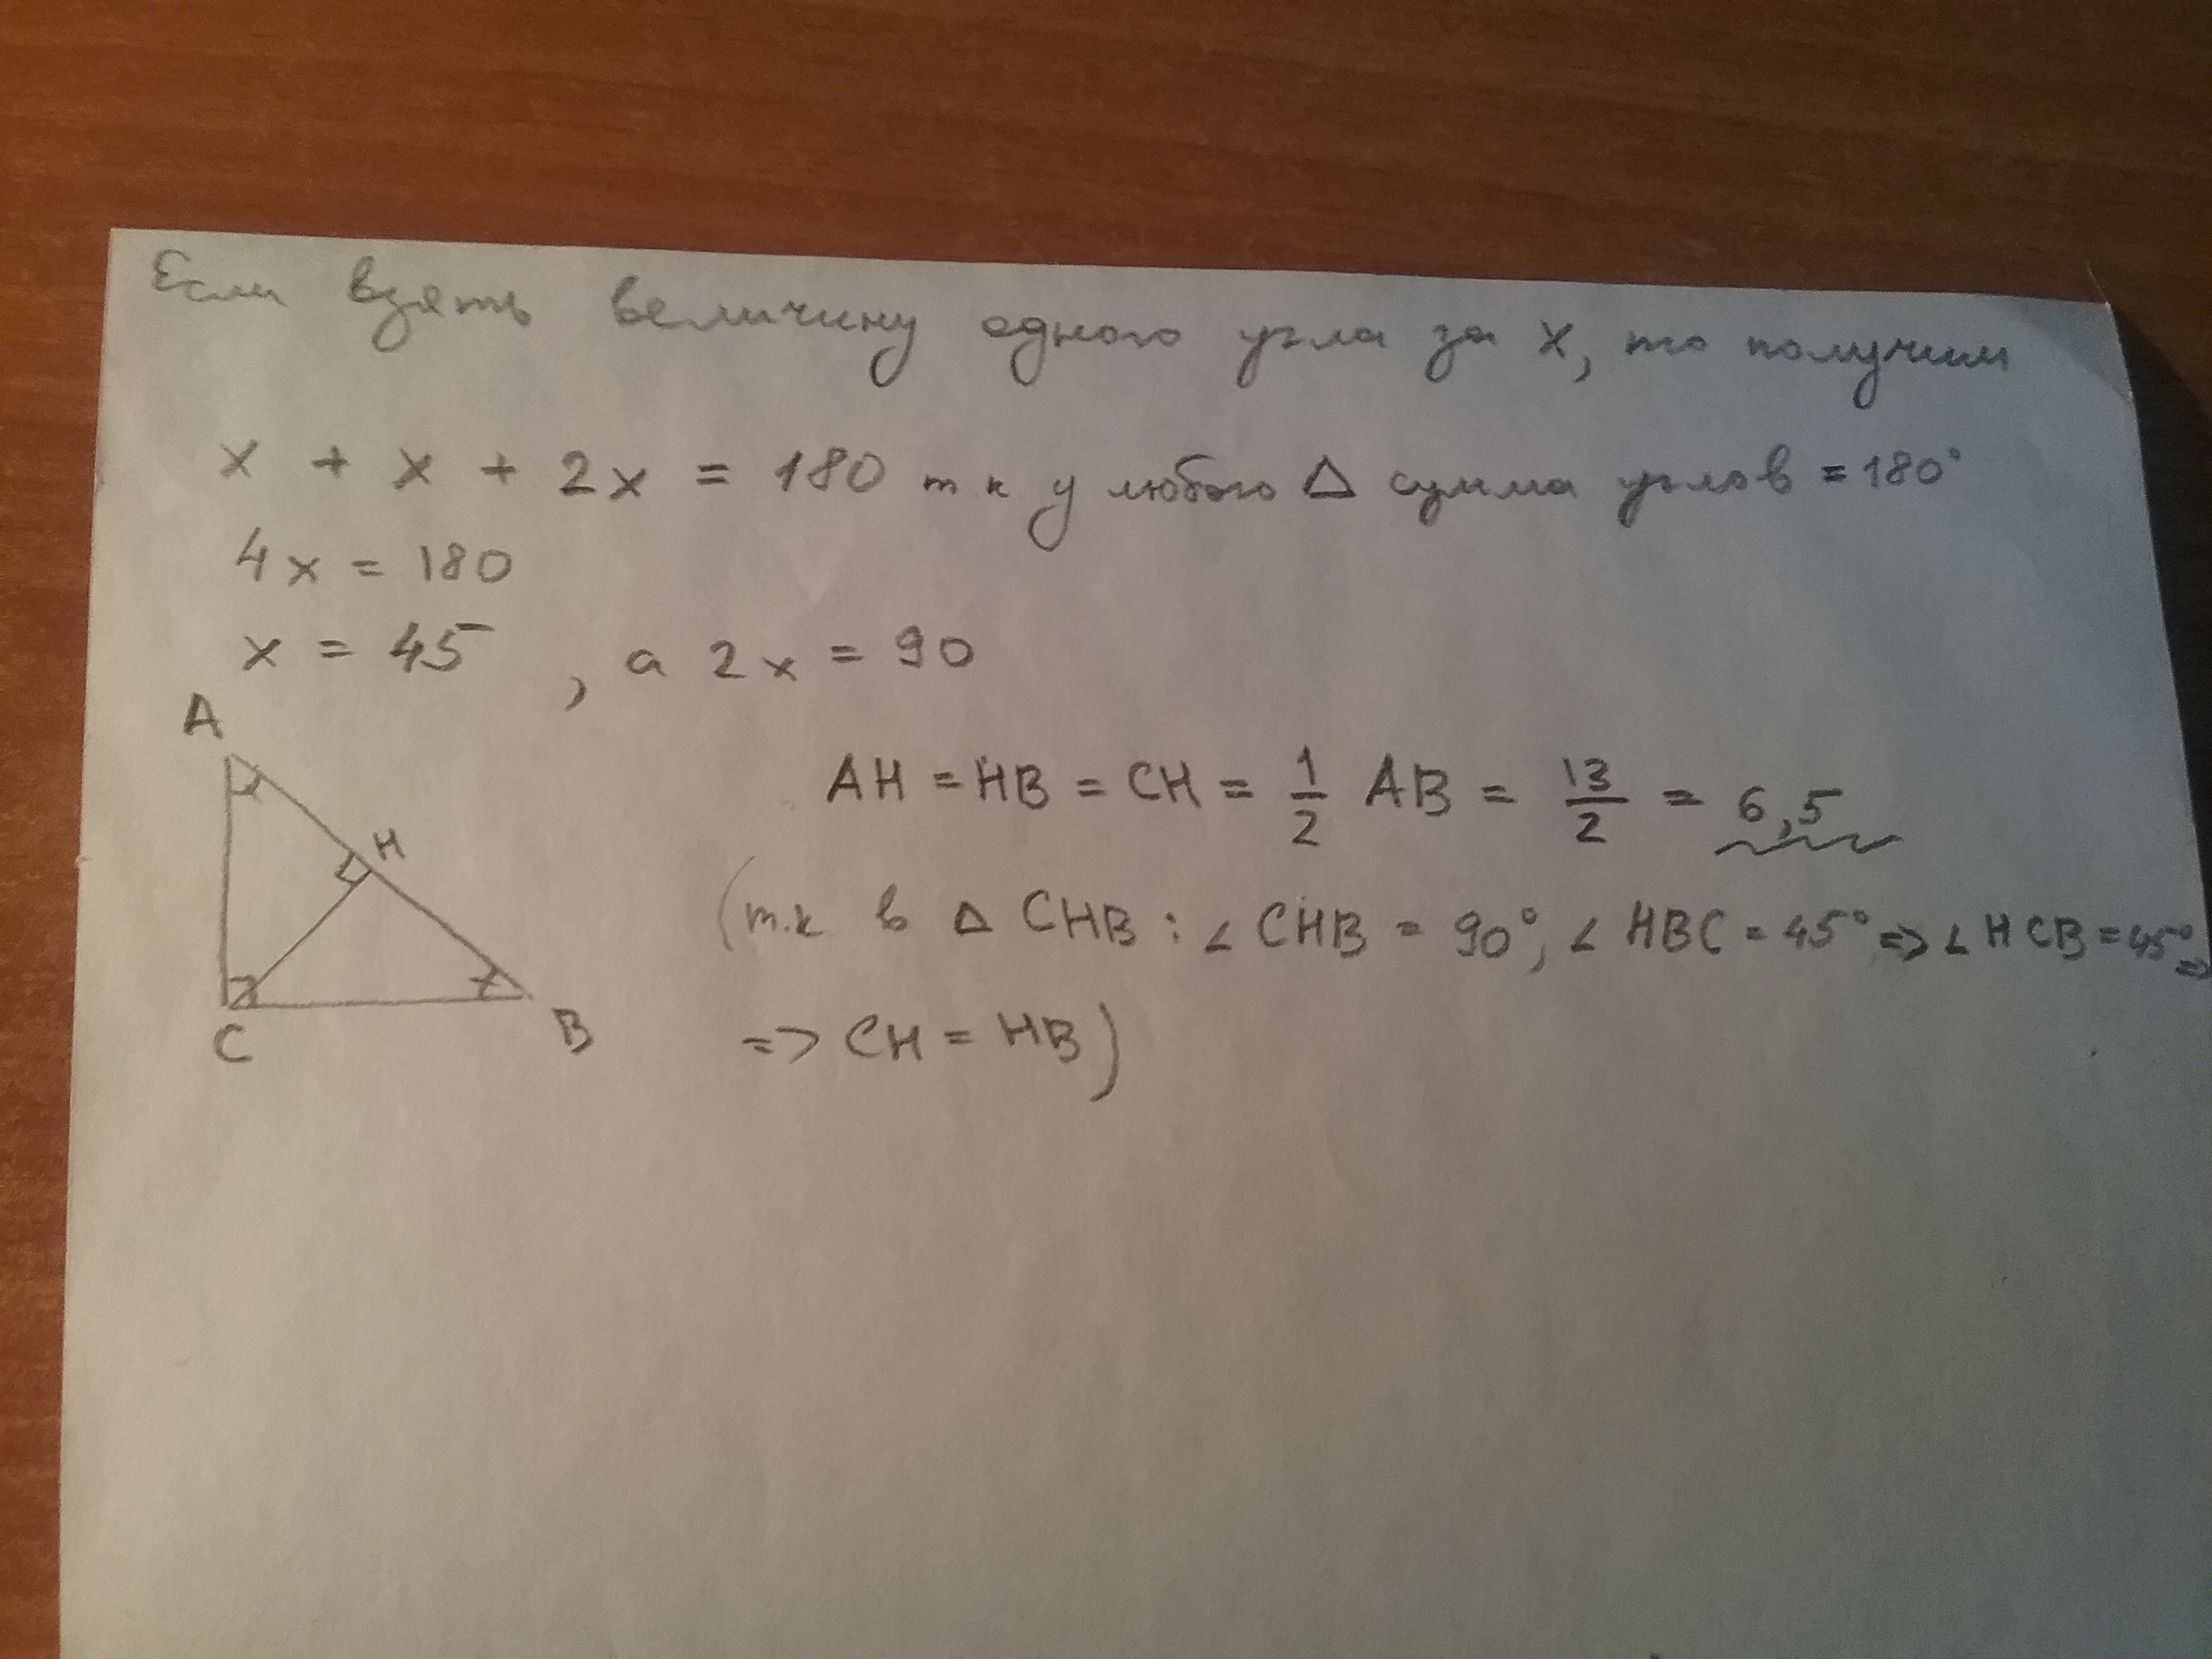 Если взять величину одного угла за x, то получим
x + x + 2x = 180 т к у любого Δ сумма углов = 180°
4x = 180
x = 45 , а 2x = 90
A
H
C
B
AH = HB = CH = 1/2 AB = 13/2 = 6,5
(т.к в Δ CHB : ∠ CHB = 90°, ∠ HBC = 45° => ∠ HCB = 45° =>
=> CH = HB)